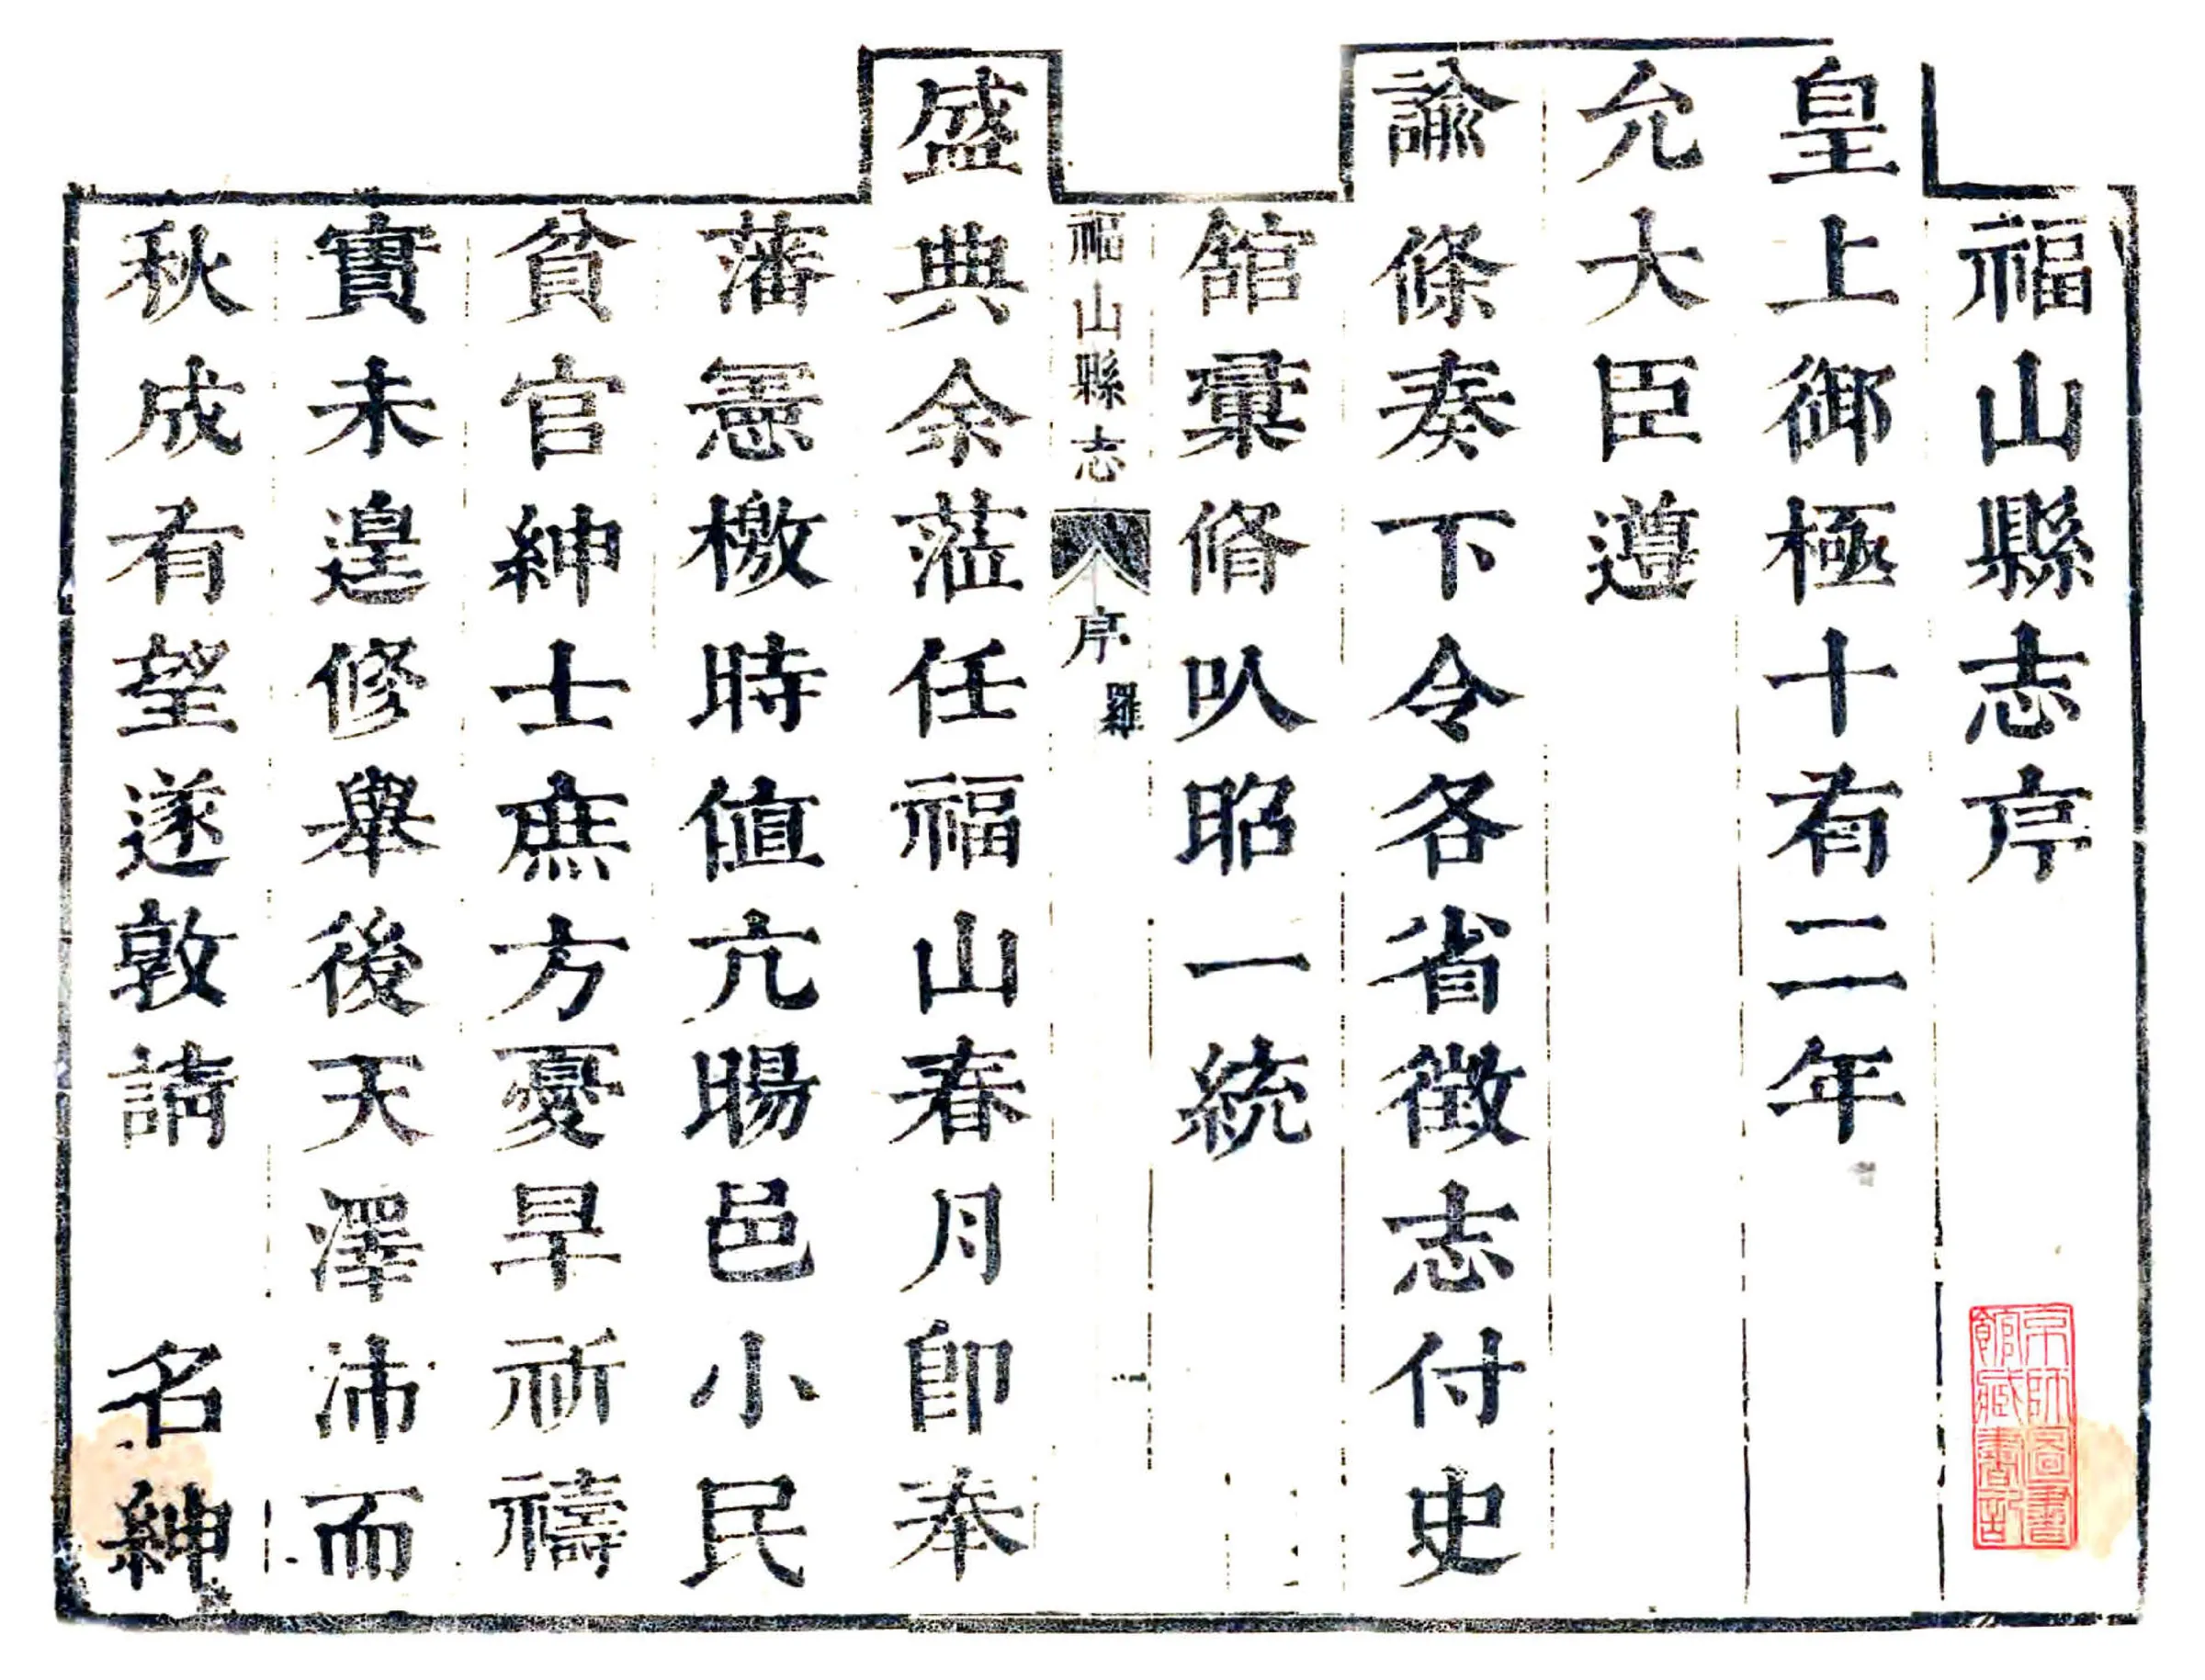 福山縣志序
皇上御極十有二年
允大臣遵
諭條奏下令各省徵志付史
舘彙脩㕥昭一統
福山縣志 序 羅
盛典余蒞任福山春月卽奉
藩憲檄時值亢暘邑小民
貧官紳士庶方憂旱祈禱
實未遑修舉後天澤沛而
秋成有望遂敦請 名紳
京師圖書
館藏書記